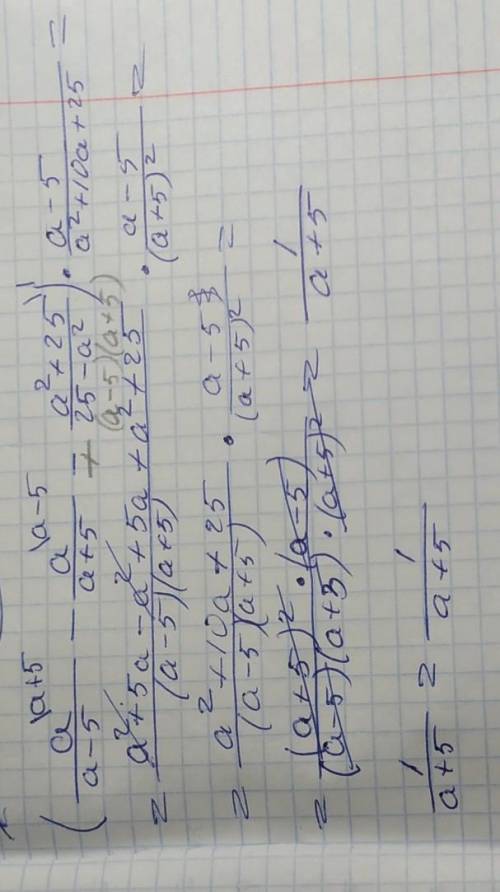 ( a/(a-5) \a+5 - a/(a+5) \a-5 - (a²+25)/(25-a²) \1 ) · (a-5)/(a²+10a+25) =
+ (a-5)(a+5)
= (a²+5a-a²+5a+a²+25)/((a-5)(a+5)) · (a-5)/(a+5)² =
= (a²+10a+25)/((a-5)(a+5)) · (a-5)/(a+5)² =
= ((a+5)²·(a-5))/((a-5)(a+5)·(a+5)²) = 1/(a+5)
1/(a+5) = 1/(a+5)